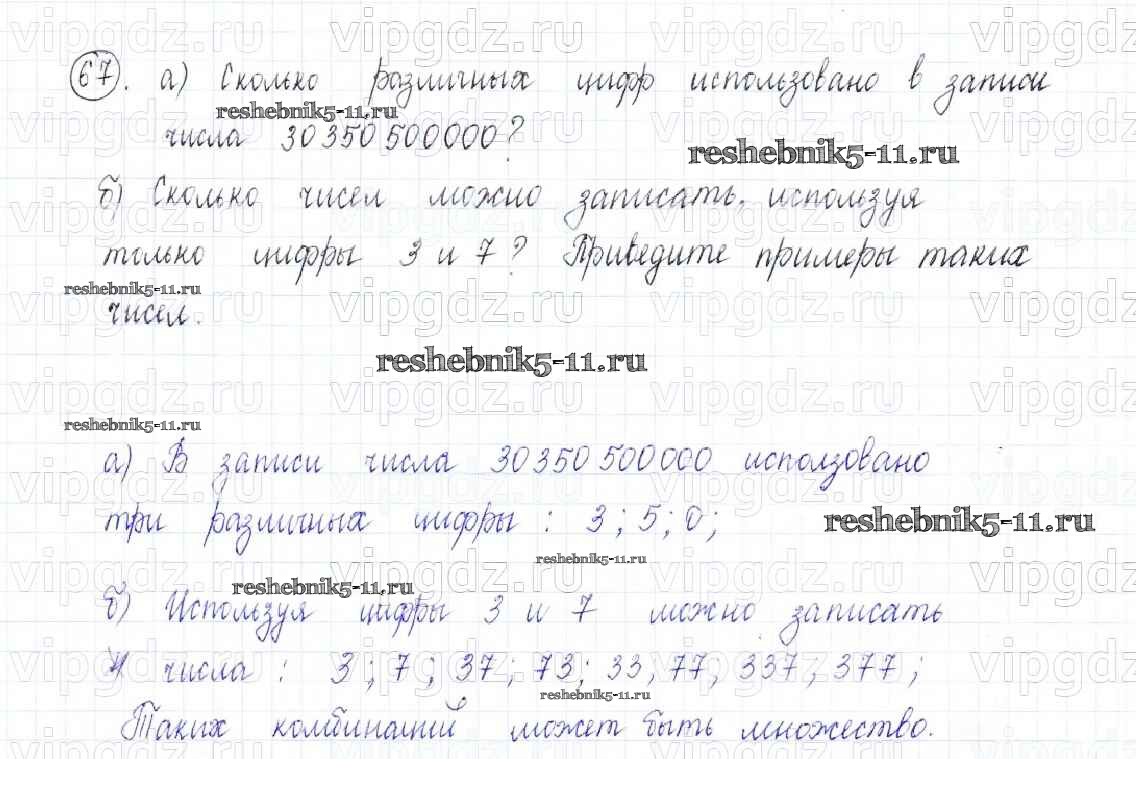 67. а) Сколько различных цифр использовано в записи
reshebnik5-11.ru
числа 30350500000?
reshebnik5-11.ru
б) Сколько чисел можно записать, используя
только цифры 3 и 7? Приведите примеры таких
reshebnik5-11.ru
чисел.
reshebnik5-11.ru
reshebnik5-11.ru
а) В записи числа 30350500000 исползовано
три различных цифры : 3; 5; 0;
reshebnik5-11.ru
reshebnik5-11.ru
reshebnik5-11.ru
б) Используя цифры 3 и 7 можно записать
числа : 3; 7; 37; 73; 33, 77; 337; 377;
reshebnik5-11.ru
Таких комбинаций может быть множество.
vipgdz.ru